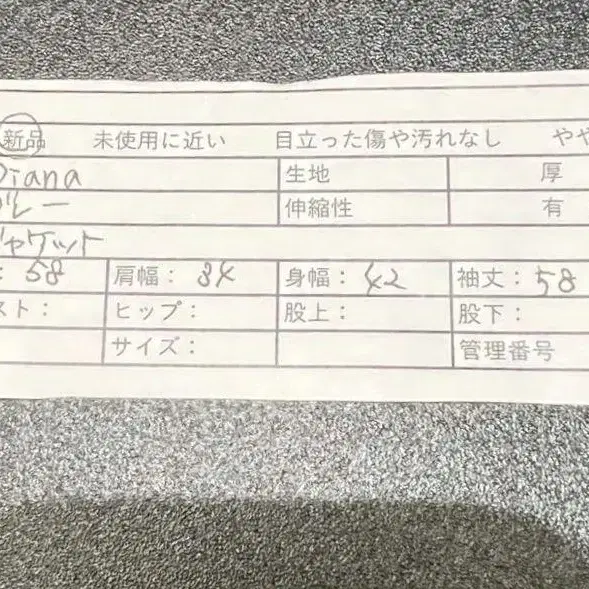 新品 未使用に近い 目立った傷や汚れなし やや
Diana 生地 厚
グレー 伸縮性 有
ジャケット
: 58 肩幅: 34 身幅: 42 袖丈: 58
スト: ヒップ: 股上: 股下:
サイズ: 管理番号